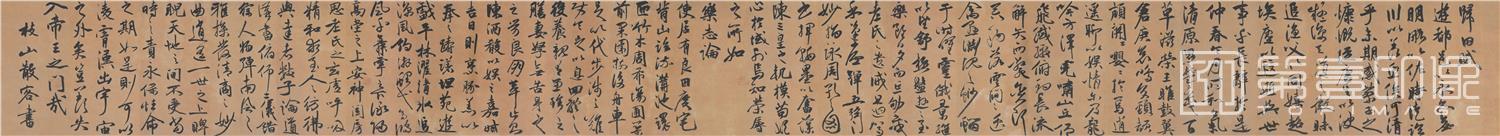 歸田賦
遊都邑以永久無
明略以佐時徒臨
川以羨魚俟河清
乎未期感蔡子之
慷慨從唐生以決
疑諒天道之微昧
追漁父以同嬉超
埃塵以遐逝與世
事乎長辭於是
仲春令月時和氣
清原隰鬱茂百
草滋榮王雎鼓翼
倉庚哀鳴交頸頡
頏關關嚶嚶於焉逍
遙聊以娛情爾乃龍
吟方澤虎嘯山丘仰
飛纖繳俯釣長流
觸矢而斃貪餌吞
鉤落雲間之逸
禽懸淵沉之魦鰡
于時曜靈俄景繼
以望舒極盤遊之至
樂雖日夕而忘劬感
老氏之遺誡迴駕
乎蓬廬彈五弦之
妙指詠周孔之圖
書揮翰墨以奮藻
陳三皇之軌模苟縱
心於域外焉知榮辱
之所如
樂志論
使居有良田廣宅
背山臨流溝池環
匝竹木周布場圃築
前果園樹後舟車
足以代步涉之難
使令足以息四體之
役養親有兼珍之
膳妻孥無苦身之
勞良朋萃止則
陳酒肴以娛之嘉時
吉日則烹羔豚以
奉之躊躇畦苑遊
戲平林濯清水追
涼風釣游鯉弋高鴻
風乎舞雩詠歸
高堂之上安神閨房
思老氏之玄虛呼吸
精和求至人之彷彿
與達者數子論道
講書俯仰二儀錯
綜人物彈南風之
雅操發清商之妙
曲逍遙一世之上睥
睨天地之間不受當
時之責永保性命
之期如是則可以
凌霄漢出宇宙
之外矣豈羨夫
入帝王之門哉
枝山散客書
第壹印象